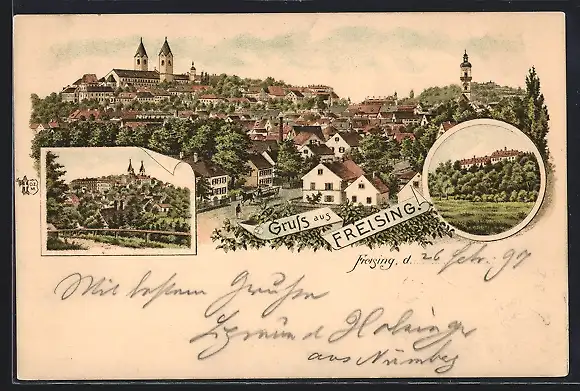 Gruß aus
FREISING.
Freising, d. 26 Febr. 97
Mit besten Grüßen
aus Nürnberg